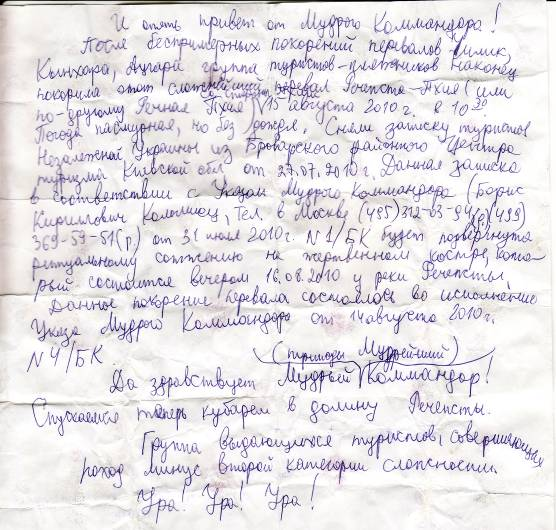 И опять привет от Мудрого Коммандора!
После беспримерных покорений перевалов Чимик,
Кынхара, Ацгара группа туристов-племянников наконец
покорила этот сложнейший перевал Речепста-Пхия (или
по-другому Речная Пхия) 15 августа 2010 г. в 10³⁰
Погода пасмурная, но без дождя. Сняли записку туристов
Незалежной Украины из Броварского районного Центра
туризма Киевской обл. от 27.07.2010 г. Данная записка
в соответствии с Указом Мудрого Коммандора (Борис
Кириллович, Тел. в Москве (495) 312-63-94, (499)
369-59-51(р) от 31 июля 2010 г. N 1/БК будет подвергнута
ритуальному сожжению на жертвенном костре, кото-
рый состоится вечером 16.08.2010 у реки Речепсты.
Данное покорение перевала состоялось во исполнение
Указа Мудрого Коммандора от 14 августа 2010 г.
N 4/БК
(трижды Мудрейший)
Да здравствует Мудрый Коммандор!
Спускаемся теперь кубарем в долину Речепсты.
Группа выдающихся туристов, совершающая
поход минус второй категории сложности.
Ура! Ура! Ура!